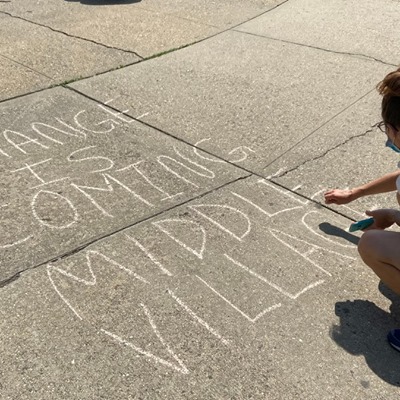 HANGE
IS
COMING
MIDDLE
VILLAG